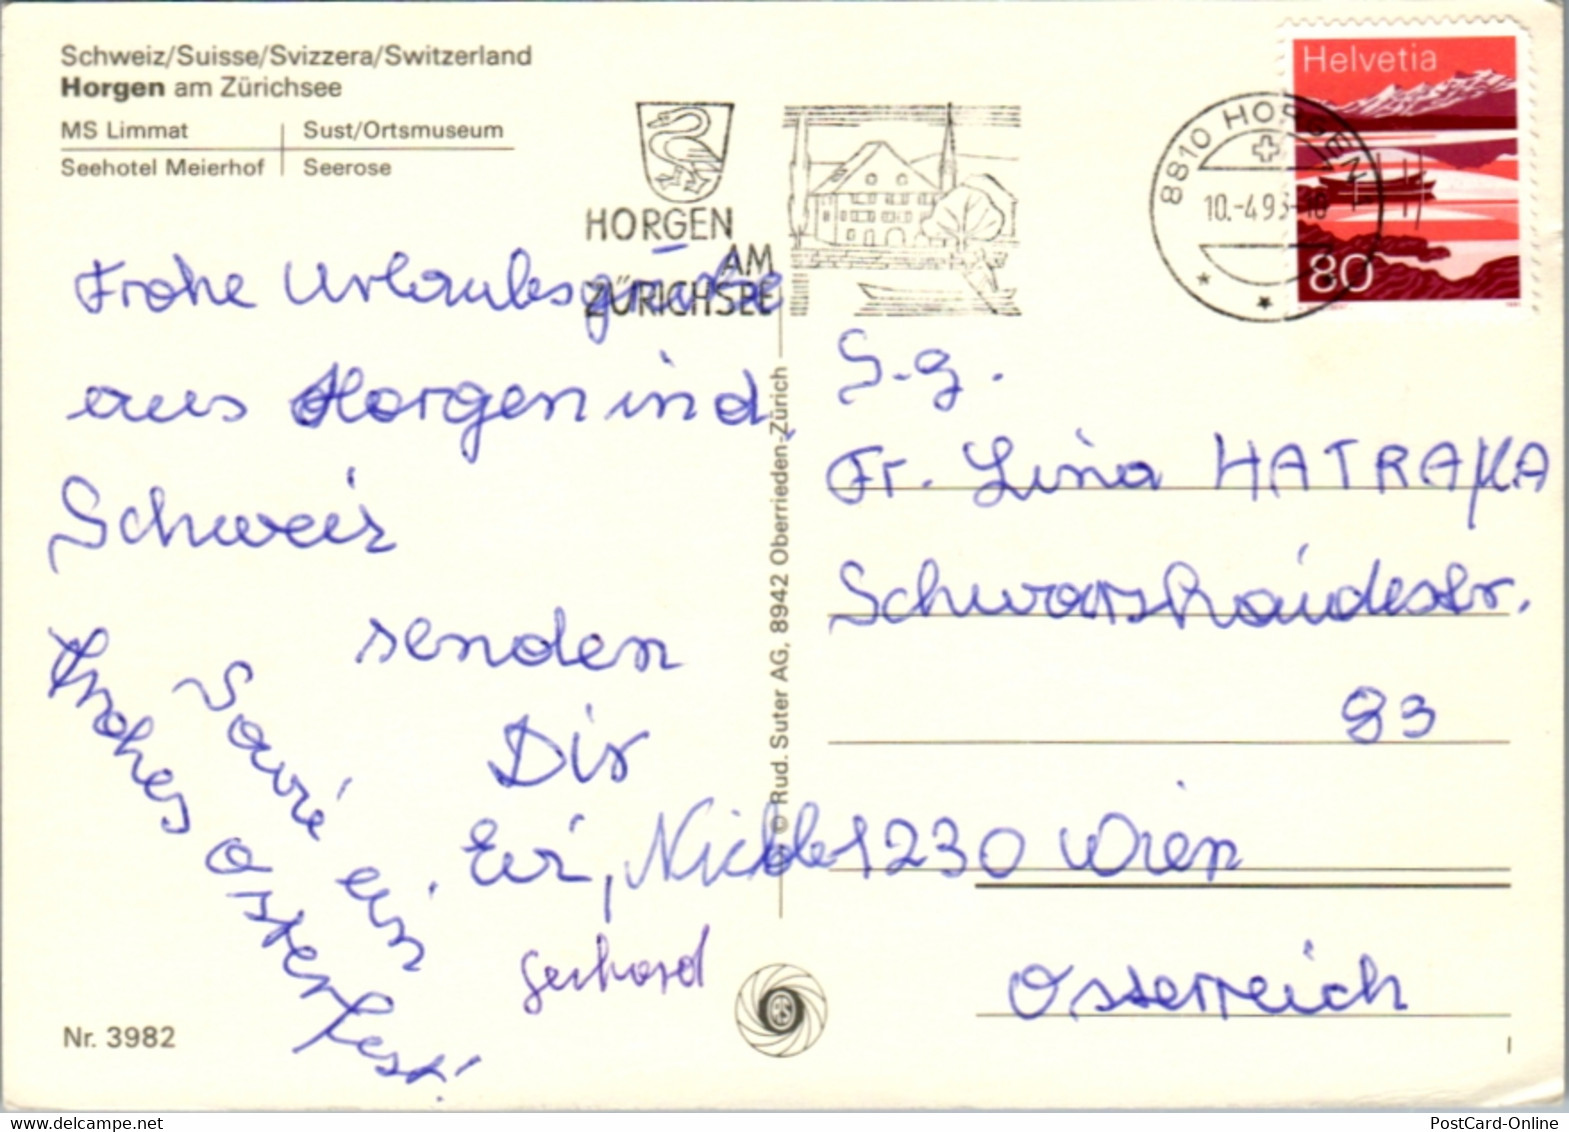 Schweiz/Suisse/Svizzera/Switzerland
Horgen am Zürichsee
MS Limmat
Sust/Ortsmuseum
Seehotel Meierhof
Seerose
HORGEN
AM
ZÜRICHSEE
8810 HORGEN
10.-4.93-18
Helvetia
80
Frohe Urlaubsgrüße
aus Horgen in d.
Schweiz
senden
Dir
Evi, Nicole
Gerhard
Sowie ein
Frohes Osterfest!
S.g.
Fr. Lina HATRAKA
Schwarzhaidestr.
93
1230 Wien
Österreich
© Rud. Suter AG, 8942 Oberrieden-Zürich
Nr. 3982
I
hiphip.com
PostCard-Online